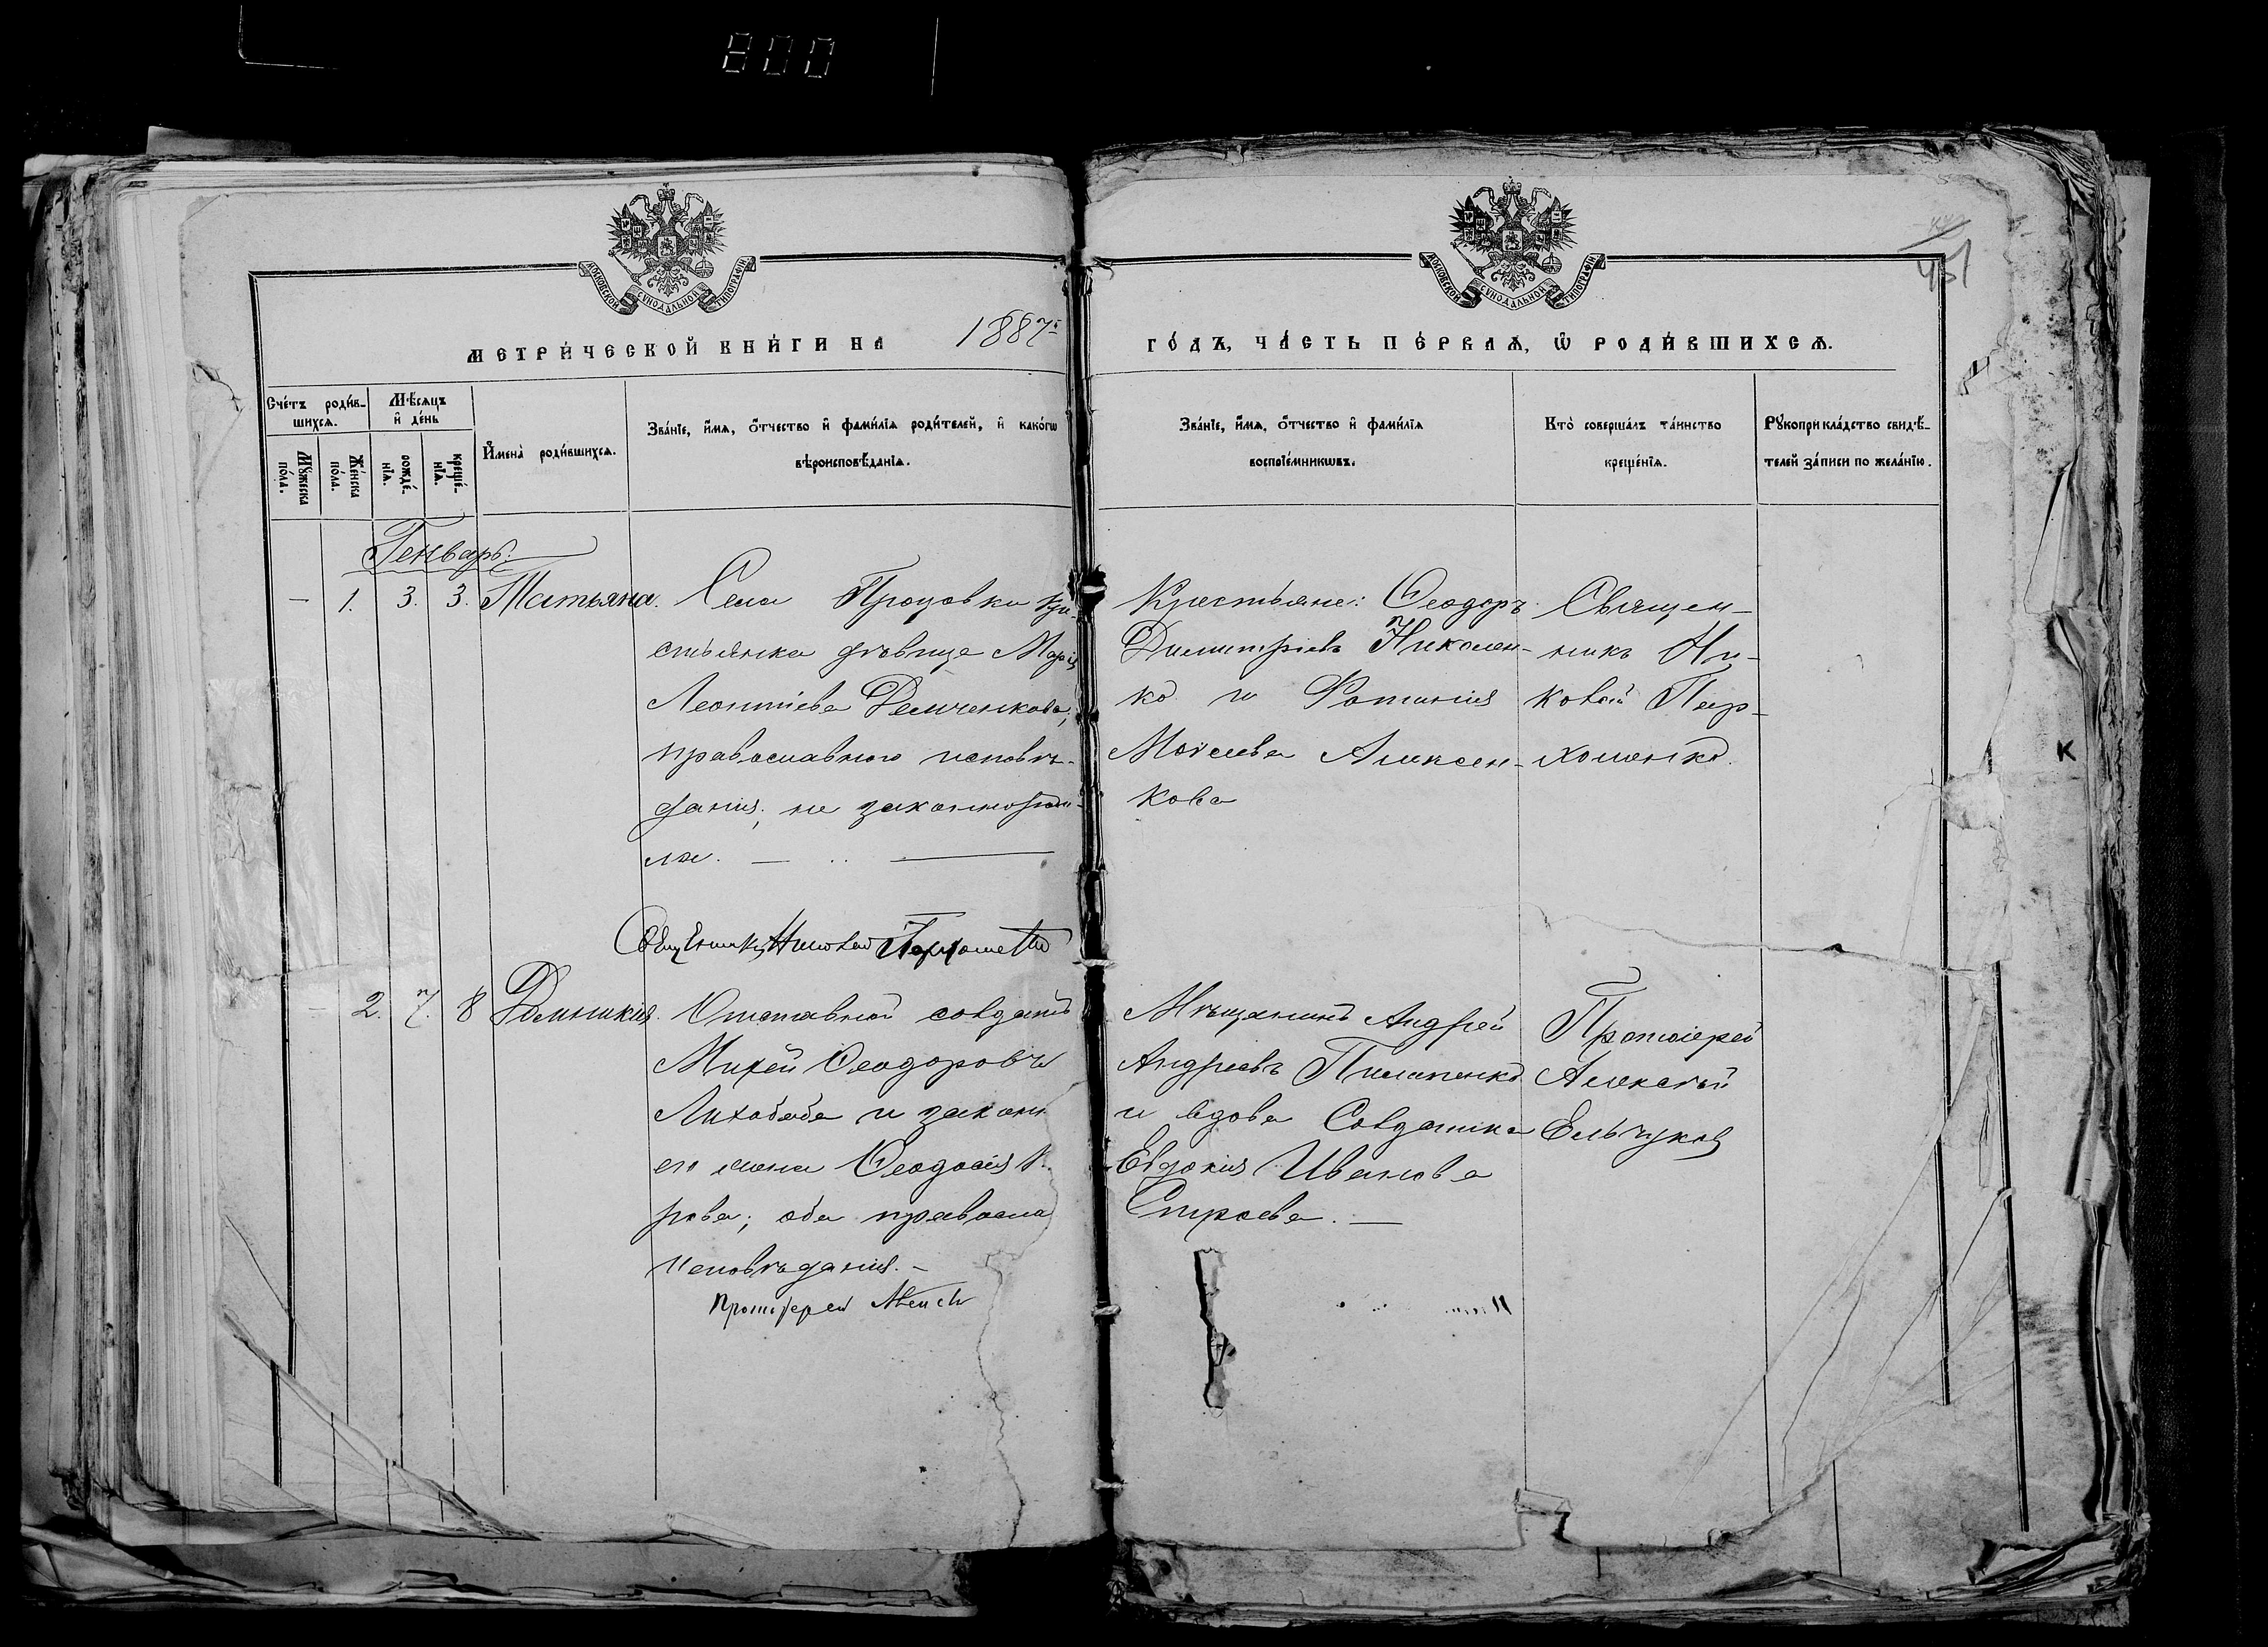 800
МОСКОВСКОЙ СѴНОДАЛЬНОЙ ТИПОГРАФІИ
МОСКОВСКОЙ СѴНОДАЛЬНОЙ ТИПОГРАФІИ
451
МЕТРИ́ЧЕСКОЙ КНИ́ГИ НА 1887й
ГО́ДЪ, ЧА́СТЬ ПЕ́РВАѦ, Ѡ҆ РОДИ́ВШИХСѦ.
Сче́тъ роди́в-
шихсѧ.
Мꙋ́жеска по́ла.
Же́нска по́ла.
Мѣ́сѧцъ и҆ де́нь
рожде́-нїѧ.
креще́-нїѧ.
И҆мена̀ роди́вшихсѧ.
Зва́нїе, и҆́мѧ, ѻ҆́тчество и҆ фами́лїѧ роди́телей, и҆ како́гѡ
вѣроисповѣ́данїѧ.
Зва́нїе, и҆́мѧ, ѻ҆́тчество и҆ фами́лїѧ
воспрїе́мникѡвъ.
Кто̀ соверша́лъ та́инство
креще́нїѧ.
Рꙋкоприкла́дство свидѣ́-
телей за́писи по жела́нїю.
Генварь.
— 1. 3. 3. Татьяна. Села Процовки кре-
стьянка дѣвица Марія
Леонтіева Демченкова,
православнаго исповѣ-
данія; не законнороди-
ла. —
Крестьяне: Ѳеодоръ
Димитріевъ Николен-
ко и Фотинія
Моѵсеева Алексен-
кова
Священ-
никъ Ни-
колай Пар-
хоменко.
Священникъ Николай Пархоменко
— 2. 7. 8 Домникія. Отставной солдатъ
Михей Ѳеодоровъ
Лихобаба и законн
его жена Ѳеодосія
рова; оба правосла
исповѣданія. —
Протоіерей Алексѣ
Мѣщанинъ Андрей
Андреевъ Пилипенко
и вдова Солдатка
Евдокія Иванова
Строева. —
Протоіерей
Алексѣй
Ельчуковъ
К